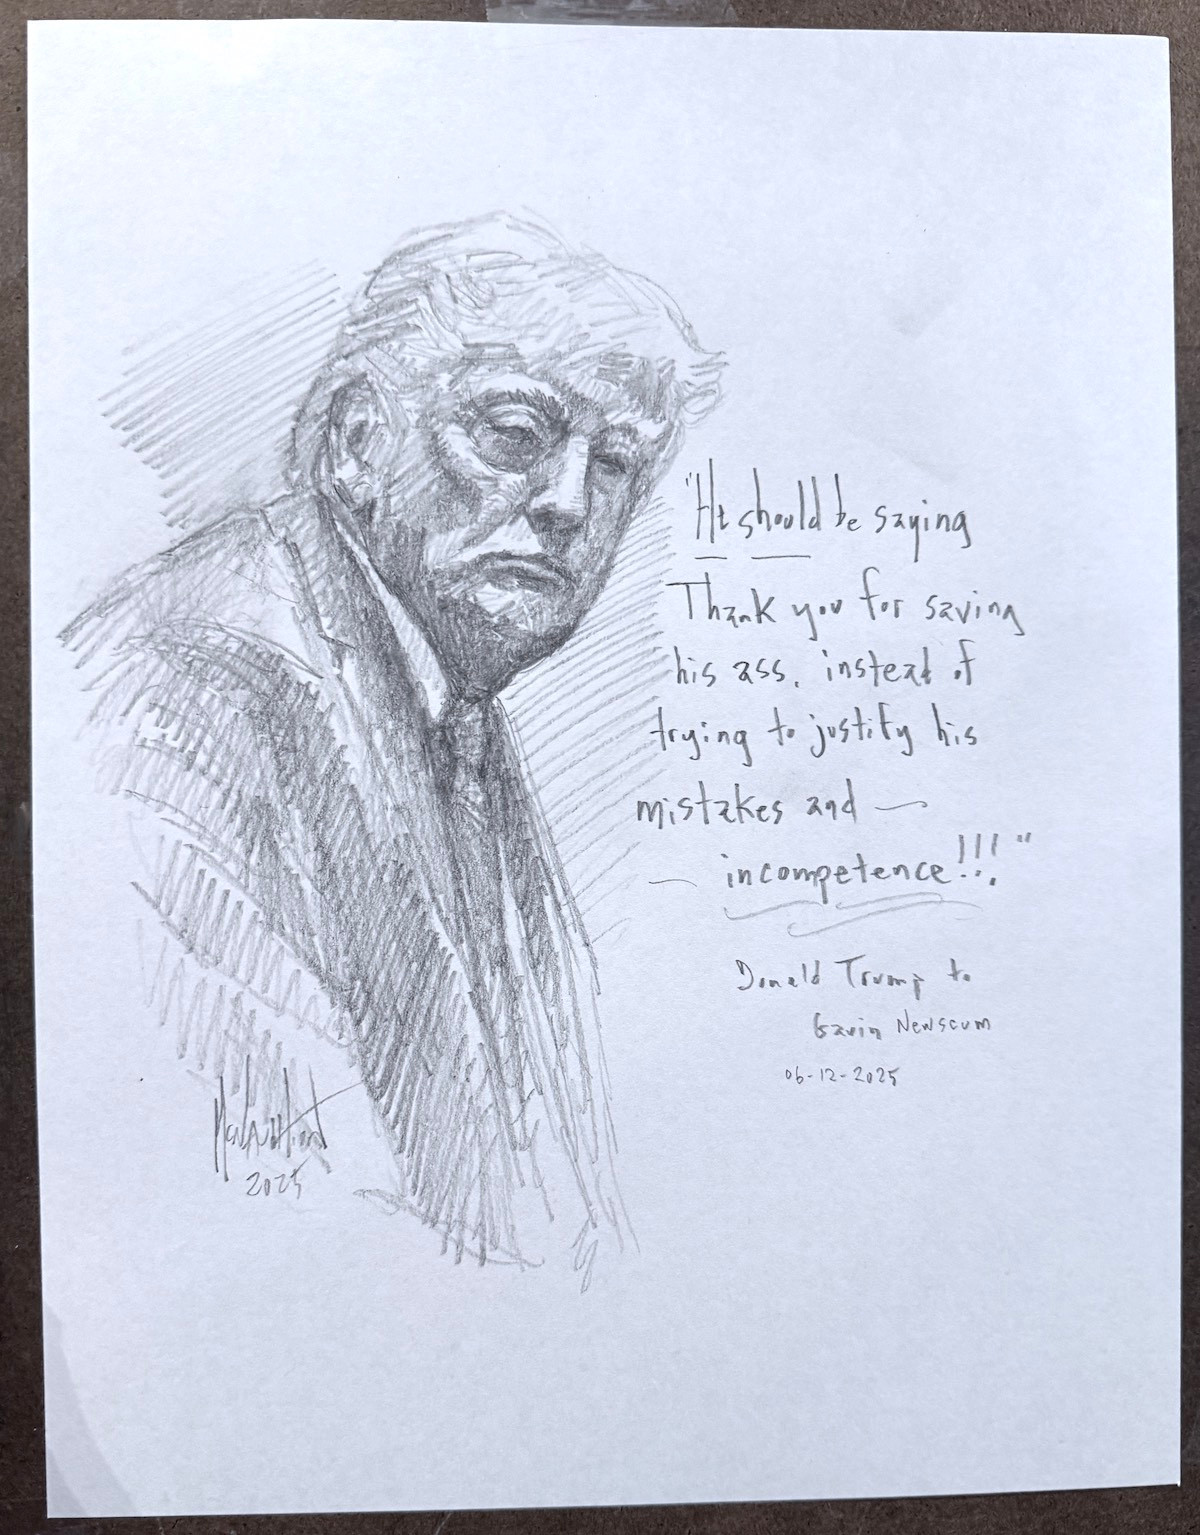 "He should be saying
Thank you for saving
his ass, instead of
trying to justify his
mistakes and —
— incompetence!!!"
Donald Trump to
Gavin Newscum
06-12-2025
McNaughton
2025